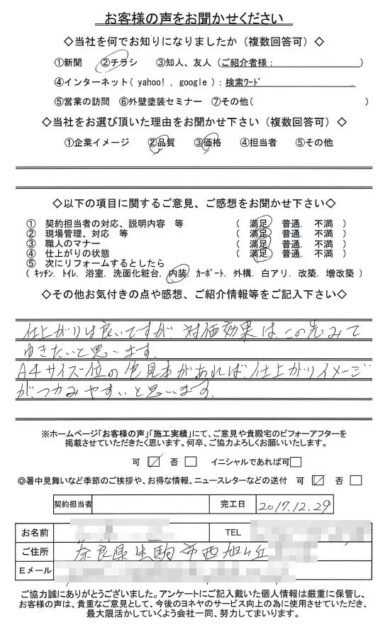 お客様の声をお聞かせください
◇当社を何でお知りになりましたか（複数回答可）◇
①新聞 ②チラシ ③知人、友人（ご紹介者様： ）
④インターネット（yahoo!，google）：検索ﾜｰﾄﾞ
⑤営業の訪問 ⑥外壁塗装セミナー ⑦その他（ ）
◇当社をお選び頂いた理由をお聞かせ下さい（複数回答可）◇
①企業イメージ ②品質 ③価格 ④担当者 ⑤その他
◇以下の項目に関するご意見、ご感想をお聞かせ下さい◇
① 契約担当者の対応、説明内容 等 （ 満足 普通. 不満 ）
② 現場管理、対応 等 （ 満足 普通. 不満 ）
③ 職人のマナー （ 満足 普通. 不満 ）
④ 仕上がりの状態 （ 満足 普通. 不満 ）
⑤ 次にリフォームするとしたら
（ｷｯﾁﾝ. ﾄｲﾚ. 浴室. 洗面化粧台. 内装. ｶｰﾎﾟｰﾄ. 外構. 白アリ. 改築. 増改築）
◇その他お気付きの点や感想、ご紹介情報等をご記入下さい◇
仕上がりは良いですが 対価効果はこの先みて
ゆきたいと思います.
A4サイズ位の色見本があれば仕上がりイメージ
がつかみやすいと思います.
※ホームページ「お客様の声」「施工実績」にて、ご意見や貴殿宅のビフォーアフターを
掲載させていただきたく思います。何卒、ご協力よろしくお願いいたします。
可 ☑ 否 □ イニシャルであれば可□
◎暑中見舞いなど季節のご挨拶や、お得な情報、ニュースレターなどの送付 可 ☑ 否 □
契約担当者 完工日 2017.12.29
お名前 TEL
ご住所 奈良県生駒市西旭ヶ丘
Eメール
ご協力誠にありがとうございました。アンケートにご記入戴いた個人情報は厳重に保管し、
お客様の声は、貴重なご意見として、今後のヨネヤのサービス向上の為に使用させていただき、
最大限活かしていくよう会社一同、努力してまいります。